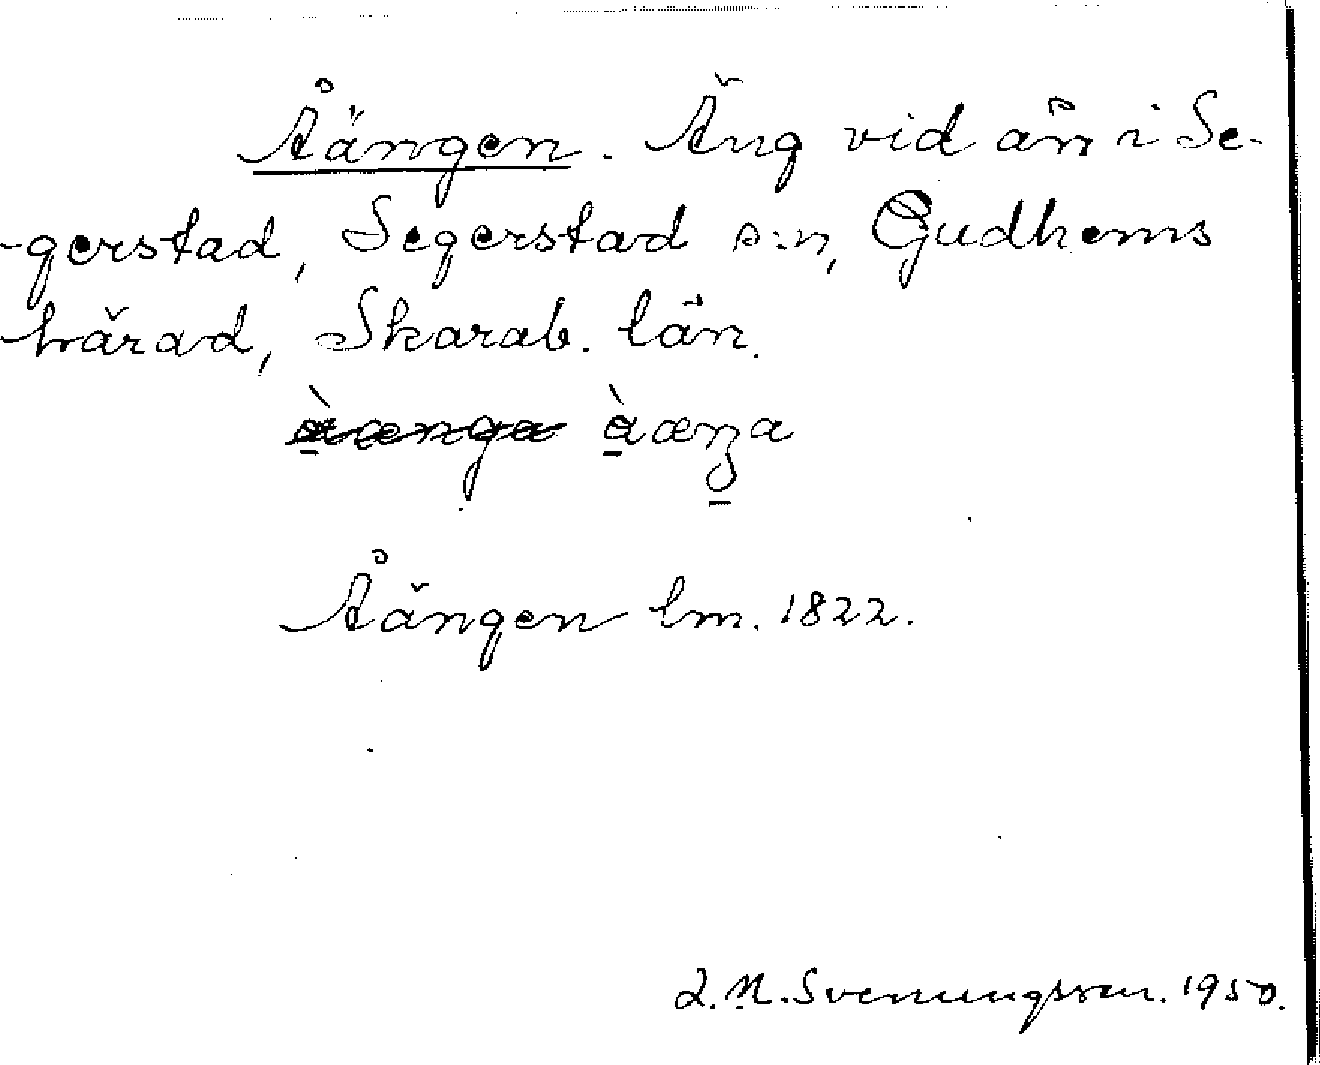 Åängen. Äng vid ån i Se-
-gerstad, Segerstad s:n, Gudhems
härad, Skarab. län.
åænga àæŋa
Åängen lm. 1822.
Svenungsson. 1950.